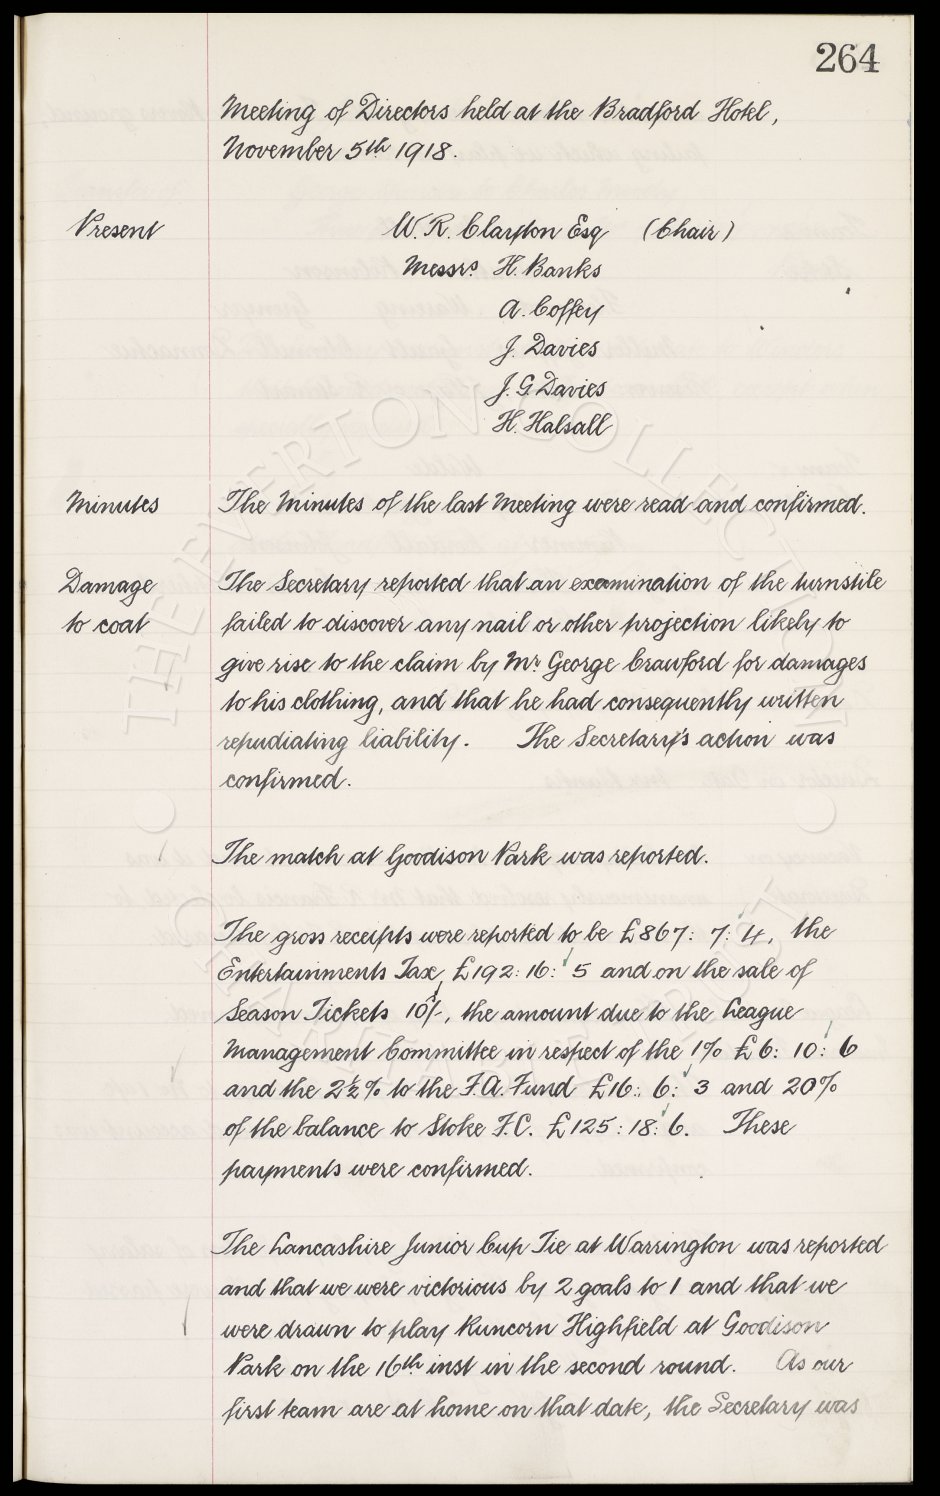 264
Meeting of Directors held at the Bradford Hotel,
November 5th 1918.
Present W. R. Clayton Esq (Chair)
Messrs H. Banks
A. Coffey
J. Davies
J. G. Davies
H. Halsall
Minutes The Minutes of the last Meeting were read and confirmed.
Damage The Secretary reported that an examination of the turnstile
to coat failed to discover any nail or other projection likely to
give rise to the claim by Mr George Crawford for damages
to his clothing, and that he had consequently written
repudiating liability. The Secretary's action was
confirmed.
The match at Goodison Park was reported.
The gross receipts were reported to be £867: 7: 4, the
Entertainments Tax, £192: 16: 5 and on the sale of
Season Tickets 10/-, the amount due to the League
Management Committee in respect of the 1% £6: 10: 6
and the 2½% to the F.A. Fund £16: 6: 3 and 20%
of the balance to Stoke F.C. £125: 18: 6. These
payments were confirmed.
The Lancashire Junior Cup Tie at Warrington was reported
and that we were victorious by 2 goals to 1 and that we
were drawn to play Runcorn Highfield at Goodison
Park on the 16th inst in the second round. As our
first team are at home on that date, the Secretary was
THE EVERTON COLLECTION
CHARITABLE TRUST